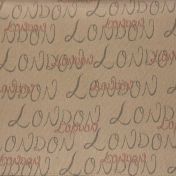 LONDON LONDON
London
LONDON LONDON
London London
LONDON LONDON
London
LONDON LONDON
London London
LONDON LONDON
London
LONDON LONDON
London London